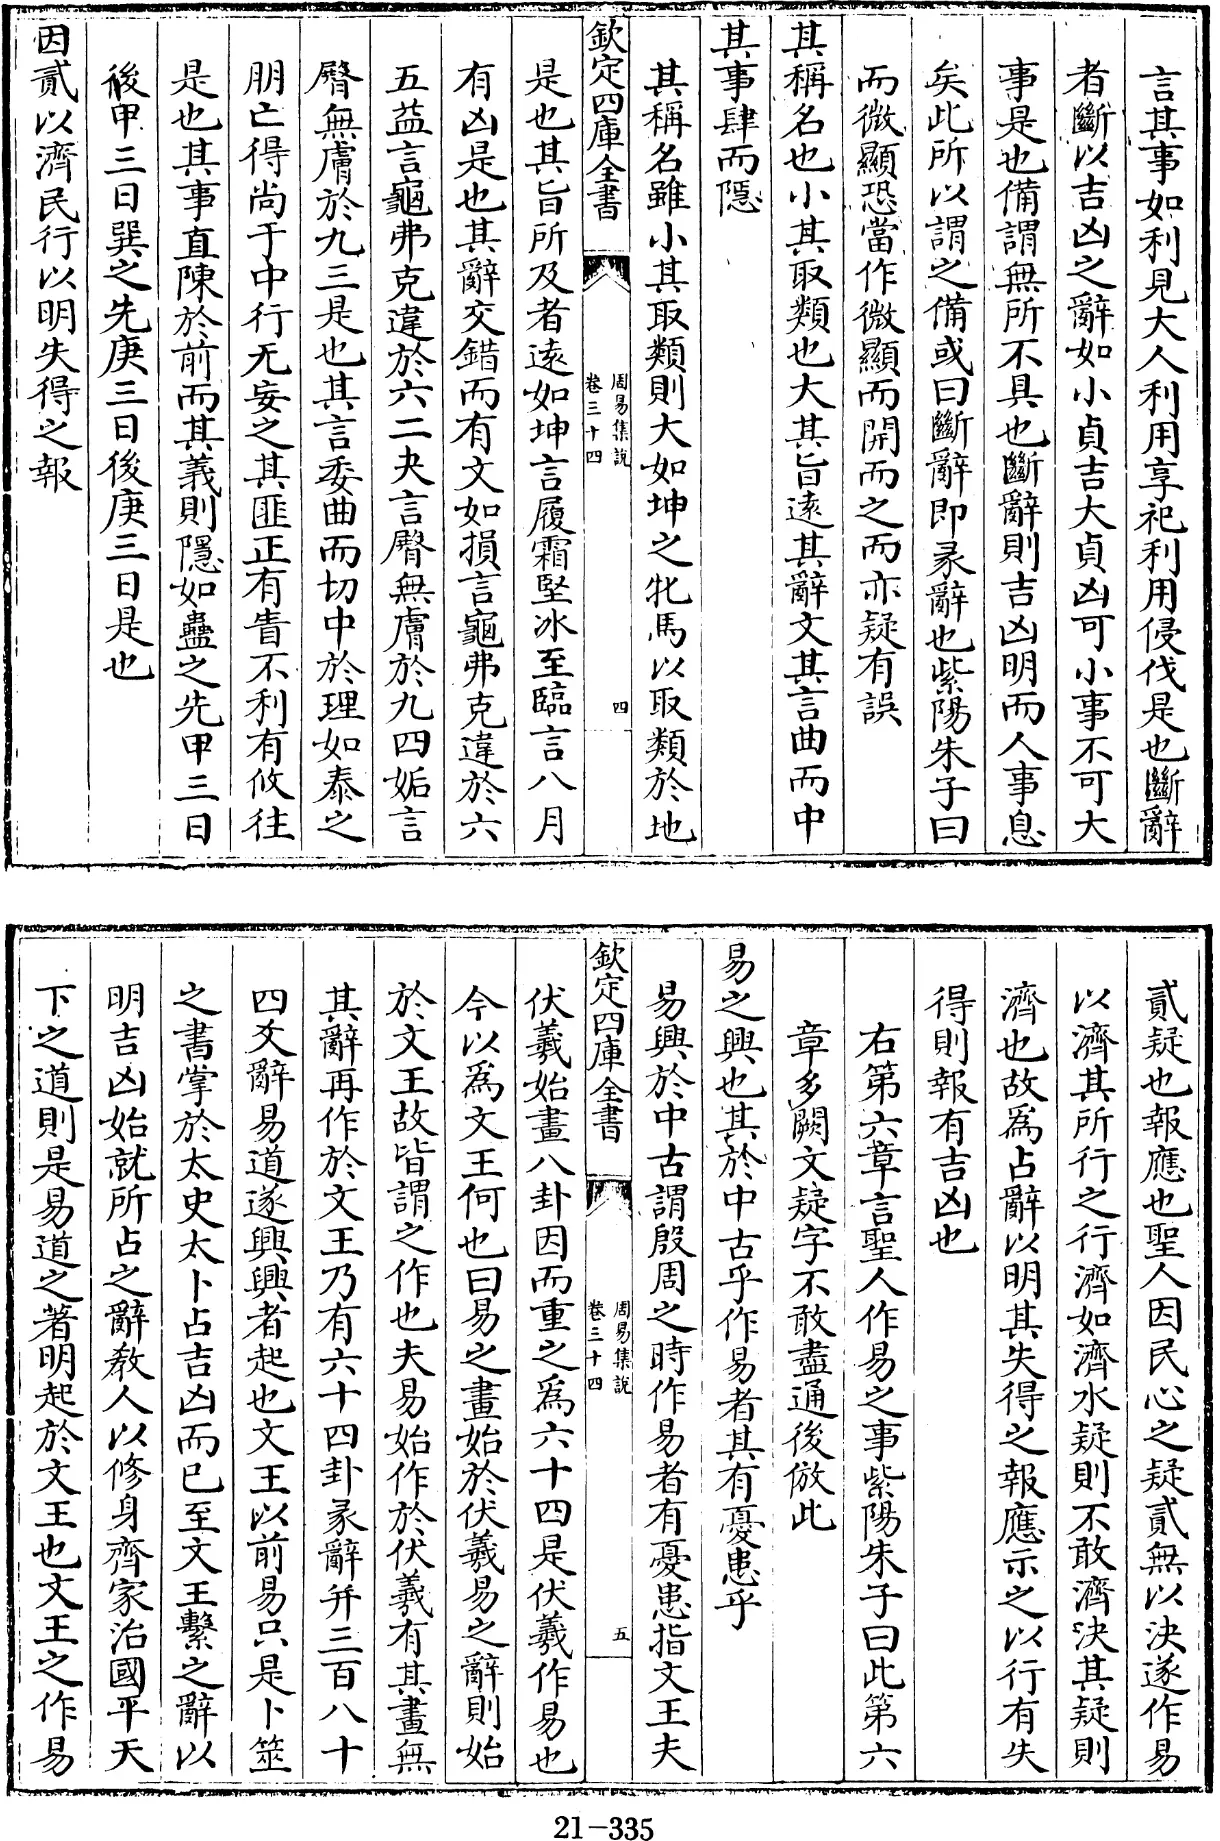 言其事如利見大人利用享祀利用侵伐是也斷辭
者斷以吉凶之辭如小貞吉大貞凶可小事不可大
事是也備謂無所不具也斷辭則吉凶明而人事息
矣此所以謂之備或曰斷辭即彖辭也紫陽朱子曰
而微顯恐當作微顯而開而之而亦疑有誤
其稱名也小其取類也大其旨遠其辭文其言曲而中
其事肆而隱
其稱名雖小其取類則大如坤之牝馬以取類於地
欽定四庫全書
周易集說
卷三十四
四
是也其旨所及者遠如坤言履霜堅冰至臨言八月
有凶是也其辭交錯而有文如損言龜弗克違於六
五益言龜弗克違於六二夬言臀無膚於九四姤言
臀無膚於九三是也其言委曲而切中於理如泰之
朋亡得尚于中行无妄之其匪正有眚不利有攸往
是也其事直陳於前而其義則隱如蠱之先甲三日
後甲三日巽之先庚三日後庚三日是也
因貳以濟民行以明失得之報
貳疑也報應也聖人因民心之疑貳無以決遂作易
以濟其所行之行濟如濟水疑則不敢濟決其疑則
濟也故爲占辭以明其失得之報應示之以行有失
得則報有吉凶也
右第六章言聖人作易之事紫陽朱子曰此第六
章多闕文疑字不敢盡通後倣此
易之興也其於中古乎作易者其有憂患乎
易興於中古謂殷周之時作易者有憂患指文王夫
欽定四庫全書
周易集說
卷三十四
五
伏羲始畫八卦因而重之爲六十四是伏羲作易也
今以爲文王何也曰易之畫始於伏羲易之辭則始
於文王故皆謂之作也夫易始作於伏羲有其畫無
其辭再作於文王乃有六十四卦彖辭并三百八十
四爻辭易道遂興興者起也文王以前易只是卜筮
之書掌於太史太卜占吉凶而已至文王繫之辭以
明吉凶始就所占之辭教人以修身齊家治國平天
下之道則是易道之著明起於文王也文王之作易
21-335